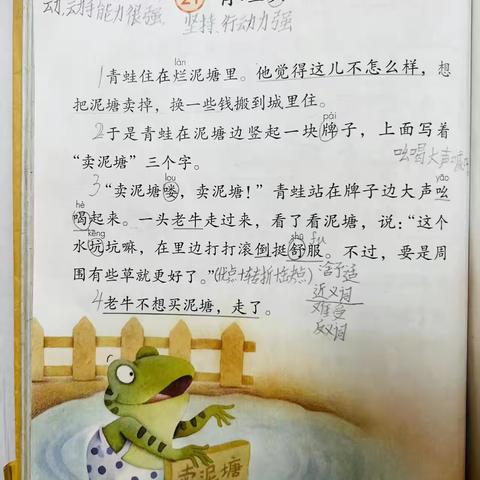 动,动手能力很强.
坚持,行动力强
21
làn
1青蛙住在烂泥塘里。他觉得这儿不怎么样，想
把泥塘卖掉，换一些钱搬到城里住。
pái
2于是青蛙在泥塘边竖起一块牌子，上面写着
“卖泥塘”三个字。
吆喝大声喊
lou yāo
3“卖泥塘喽，卖泥塘！”青蛙站在牌子边大声吆
hè
喝起来。一头老牛走过来，看了看泥塘，说：“这个
kēng shū fu
水坑坑嘛，在里边打打滚倒挺舒服。不过，要是周
围有些草就更好了。”(优点+转折+缺点)
舒适
近义词
难受
反义词
4老牛不想买泥塘，走了。
卖泥塘